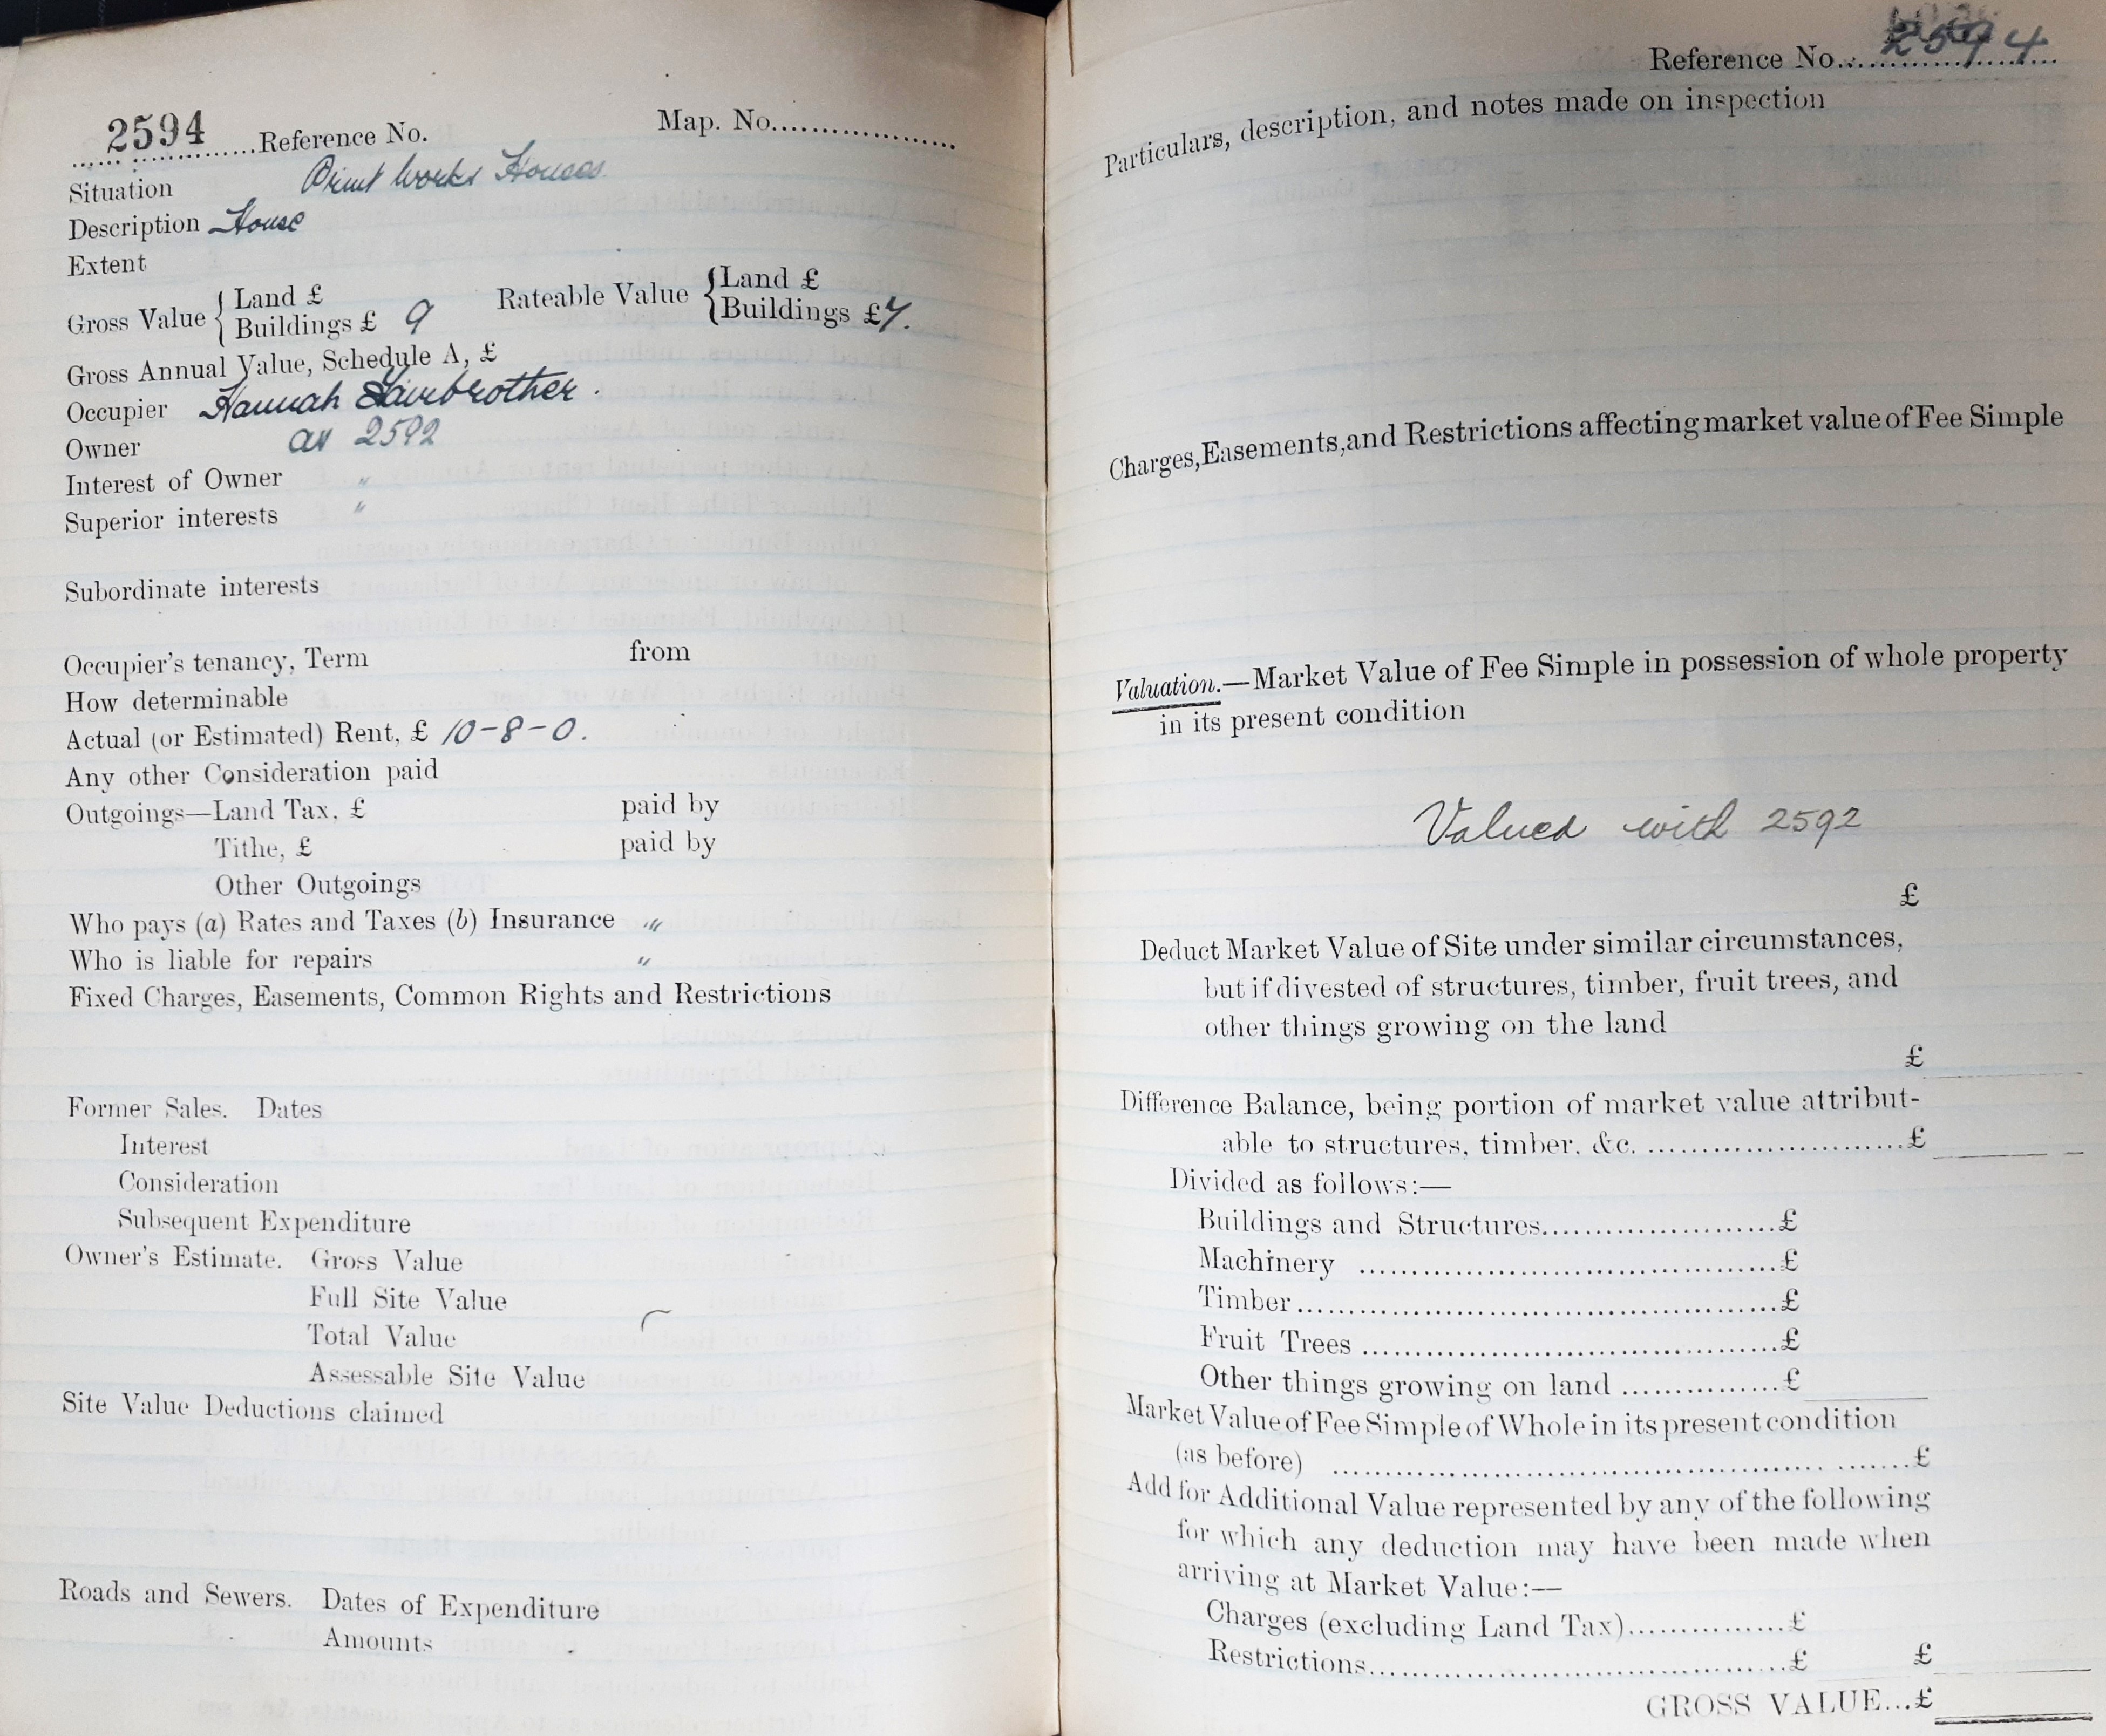 2594 Reference No. Map. No.
Situation Print Works Houses
Description House
Extent
Gross Value { Land £ Rateable Value { Land £
Buildings £ 9 Buildings £ 7.
Gross Annual Value, Schedule A, £
Occupier Hannah Fairbrother.
Owner as 2592
Interest of Owner "
Superior interests "
Subordinate interests
Occupier's tenancy, Term from
How determinable
Actual (or Estimated) Rent, £ 10-8-0.
Any other Consideration paid
Outgoings—Land Tax, £ paid by
Tithe, £ paid by
Other Outgoings
Who pays (a) Rates and Taxes (b) Insurance "
Who is liable for repairs "
Fixed Charges, Easements, Common Rights and Restrictions
Former Sales. Dates
Interest
Consideration
Subsequent Expenditure
Owner's Estimate. Gross Value
Full Site Value
Total Value
Assessable Site Value
Site Value Deductions claimed
Roads and Sewers. Dates of Expenditure
Amounts
Reference No. 2594
Particulars, description, and notes made on inspection
Charges, Easements, and Restrictions affecting market value of Fee Simple
Valuation.—Market Value of Fee Simple in possession of whole property
in its present condition
Valued with 2592
£
Deduct Market Value of Site under similar circumstances,
but if divested of structures, timber, fruit trees, and
other things growing on the land
£
Difference Balance, being portion of market value attribut-
able to structures, timber, &c. £
Divided as follows:—
Buildings and Structures £
Machinery £
Timber £
Fruit Trees £
Other things growing on land £
Market Value of Fee Simple of Whole in its present condition
(as before) £
Add for Additional Value represented by any of the following
for which any deduction may have been made when
arriving at Market Value:—
Charges (excluding Land Tax) £
Restrictions £ £
GROSS VALUE...£